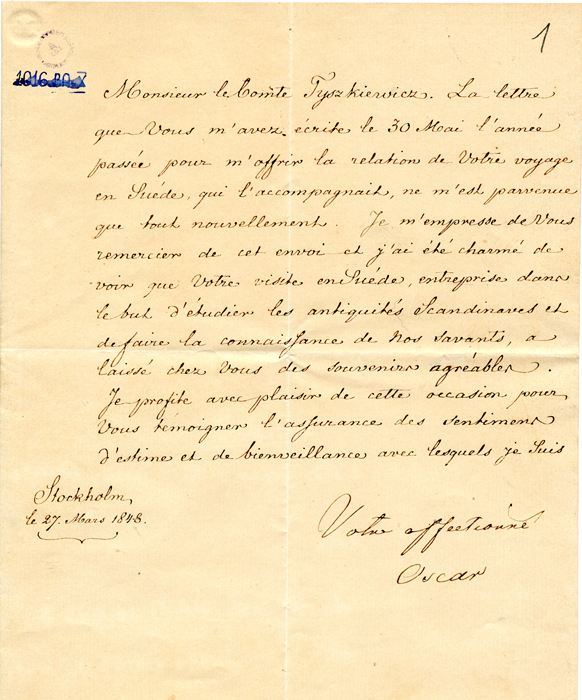 1
1016 BO X
Monsieur le Comte Tyszkiewicz. La lettre
que Vous m'avez écrite le 30 Mai l'année
passée pour m'offrir la relation de Votre voyage
en Suéde, qui l'accompagnait, ne m'est parvenue
que tout nouvellement. Je m'empresse de Vous
remercier de cet envoi et j'ai été charmé de
voir que Votre visite en Suéde, entreprise dans
le but d'étudier les antiquités Scandinaves et
de faire la connaissance de Nos savants, a
laissé chez Vous des souvenirs agréables.
Je profite avec plaisir de cette occasion pour
Vous témoigner l'assurance des sentiments
d'estime et de bienveillance avec lesquels je Suis
Stockholm
le 27. Mars 1848.
Votre affectionné
Oscar